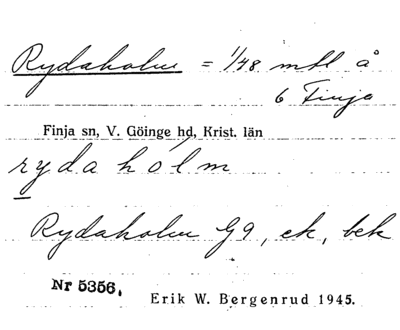 Rydaholm = 1/48 mtl å
6 Finja
Finja sn, V. Göinge hd, Krist. län
rydahólm
Rydaholm G9, ek, bek
Nr 5356.
Erik W. Bergenrud 1945.